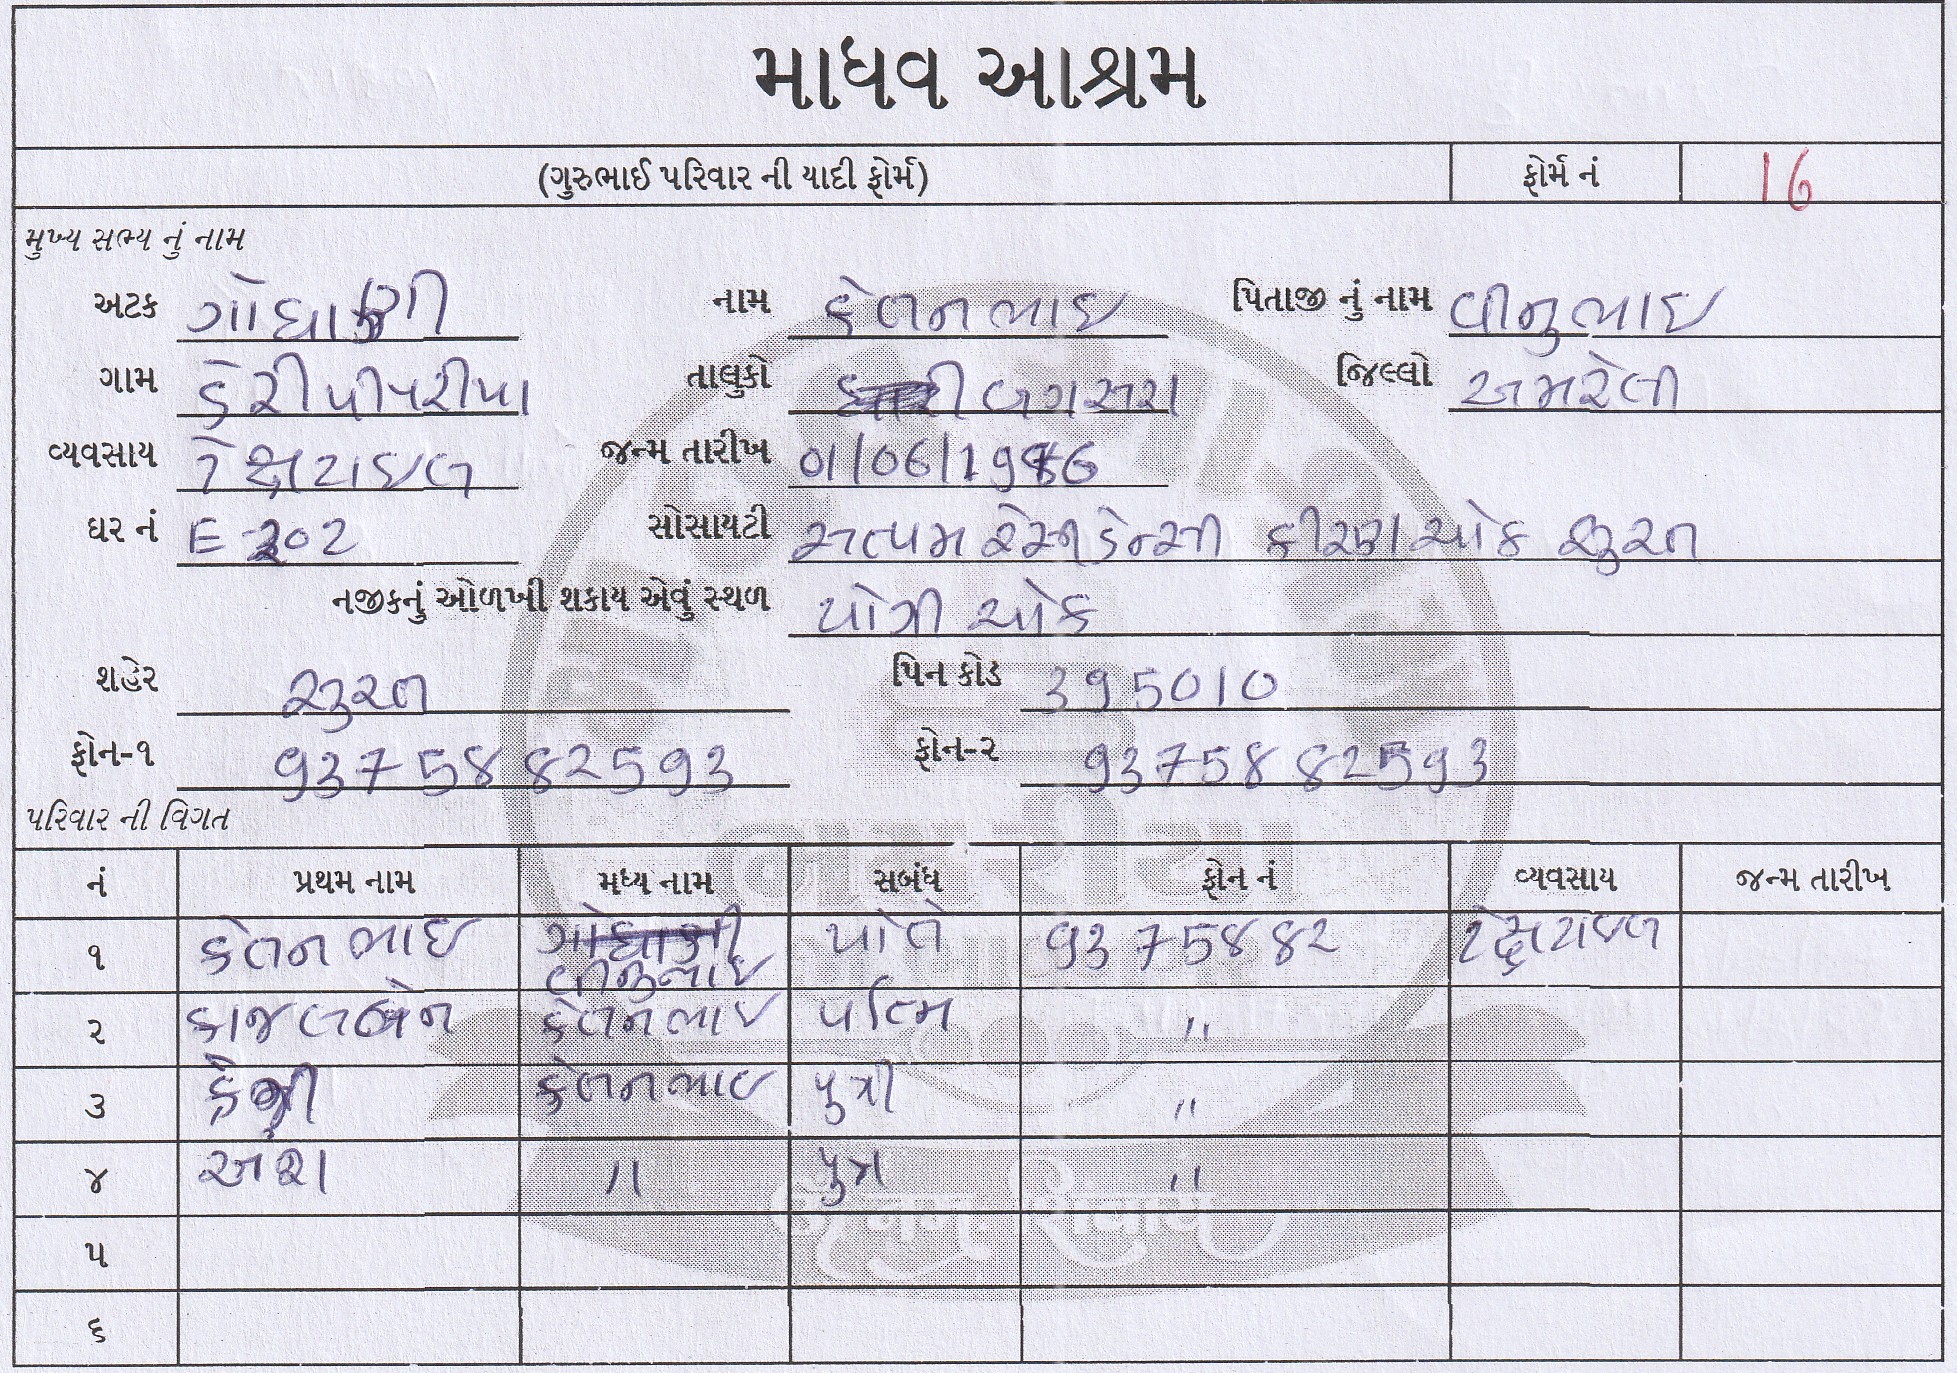 માધવ આશ્રમ
(ગુરુભાઈ પરિવાર ની યાદી ફોર્મ) ફોર્મ નં 16
મુખ્ય સભ્ય નું નામ
અટક ગોધાણી નામ કેતનભાઇ પિતાજી નું નામ વીનુભાઇ
ગામ ડેરીપીપરીયા તાલુકો બગસરા જિલ્લો અમરેલી
વ્યવસાય ટેક્ષટાઇલ જન્મ તારીખ 01/06/1986
ઘર નં E-202 સોસાયટી સત્યમ રેસીડેન્સી કીરણ ચોક સુરત
નજીકનું ઓળખી શકાય એવું સ્થળ યોગી ચોક
શહેર સુરત પિન કોડ 395010
ફોન-૧ 93758 82593 ફોન-૨ 93758 82593
પરિવાર ની વિગત
નં પ્રથમ નામ મધ્ય નામ સબંધ ફોન નં વ્યવસાય જન્મ તારીખ
૧ કેતનભાઇ વીનુભાઇ પોતે 9375882 ટેક્ષટાઇલ
૨ કાજલબેન કેતનભાઇ પત્નિ ,,
૩ કેતનભાઇ પુત્રી ,,
૪ અંશ ,, પુત્ર ,,
૫
૬